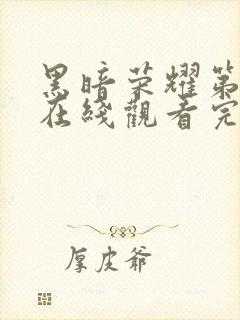 黑暗荣耀第
在线觀看完
厚皮爷